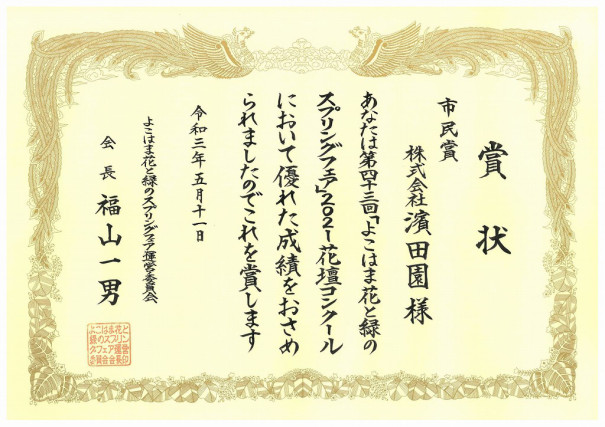 賞状
市民賞
株式会社 濱田園 様
あなたは第四十三回「よこはま花と緑の
スプリングフェア」2021花壇コンクール
において優れた成績をおさめ
られましたのでこれを賞します
令和三年五月十一日
よこはま花と緑のスプリングフェア運営委員会
会長 福山一男
よこはま花と
緑のスプリン
グフェア運営
委員会会長印